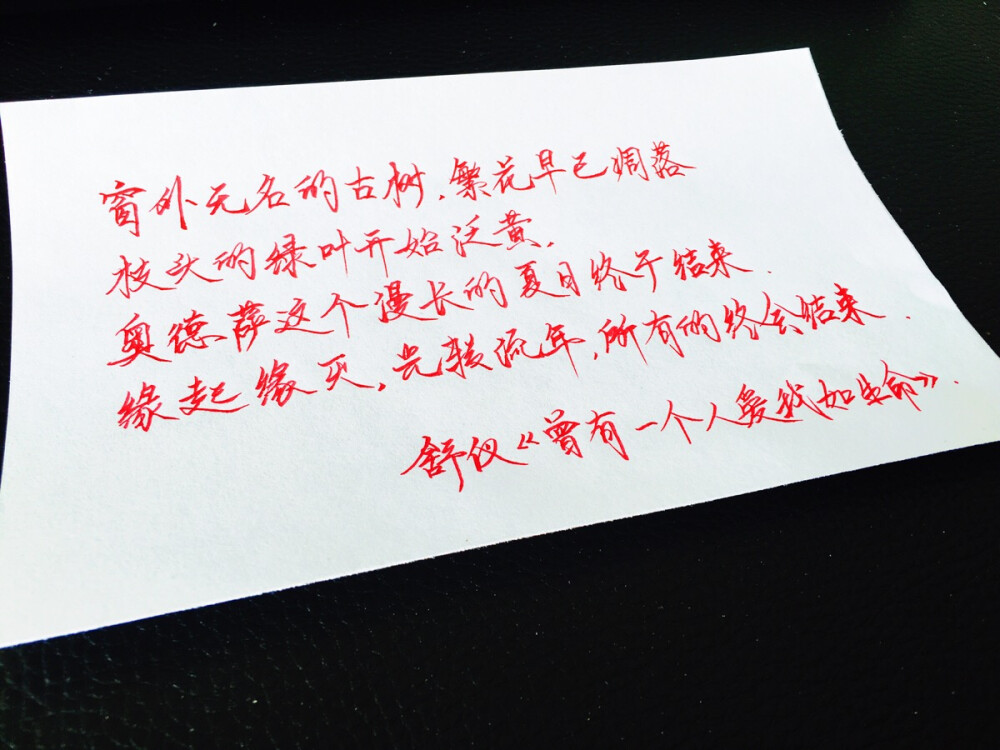 窗外无名的古树,繁花早已凋落
枝头的绿叶开始泛黄,
奥德萨这个漫长的夏日终于结束.
缘起缘灭,光转流年,所有的终会结束.
舒仪《曾有一个人爱我如生命》.